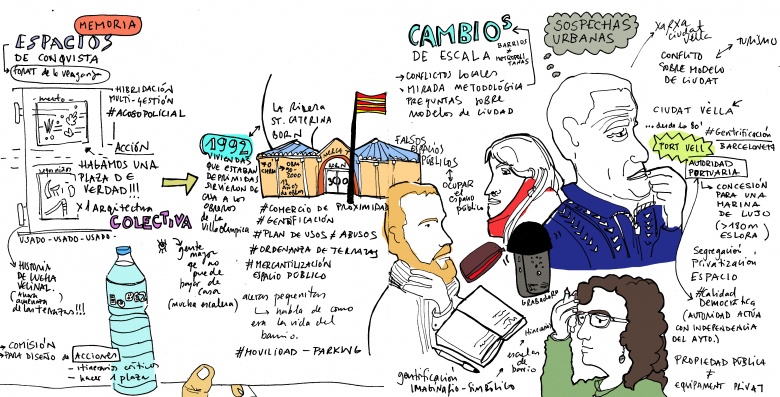 MEMORIA
ESPACIOS
DE CONQUISTA
FORAT de la VERGONYA
HIBRIDACIÓN
MULTI-GESTIÓN
#ACOSO POLICIAL
huerto
ACCIÓN
HAGAMOS UNA
PLAZA DE
VERDAD!!!
X 1 ARQUITECTURA
COLECTIVA
USADO-USADO-USADO
HISTORIA
DE LUCHA
VECINAL
de las terrazas!!!
COMISIÓN
PARA DISEÑO de ACCIONES
- itinerarios críticos
- hacer 1 plaza
gente
mayor
que no
puede
bajar de
casa
(mucha escalera)
LA RIBERA
ST. CATERINA
BORN
1992
VIVIENDAS
QUE ESTABAN
DEPRIMIDAS
SIRVIERON DE
CASA A LOS
OBREROS
DE LA
VILLA OLÍMPICA
MERCAT
BORN
FALSOS
ESPACIOS
PÚBLICOS
OCUPAR
el espacio
público
#COMERCIO DE PROXIMIDAD
#GENTIFICACIÓN
#PLAN DE USOS ≠ ABUSOS
#ORDENANZA DE TERRAZAS
#MERCANTILIZACIÓN
ESPACIO PÚBLICO
aceras pequeñitas
habla de como
era la vida del
barrio.
#MOVILIDAD - PARKING
CAMBIOS
DE ESCALA
BARRIOS
≠
METROPOLITANAS
CONFLICTOS LOCALES
MIRADA METODOLÓGICA
PREGUNTAS SOBRE
MODELOS DE CIUDAD
GRABADORA
itinerarios
escalas de
barrio
gentificación
IMAGINARIO-SIMBÓLICO
SOSPECHAS
URBANAS
XARXA
CIUTAT
VELLA
TURISMO
CONFLICTO
SOBRE MODELO
DE CIUTAT
CIUTAT VELLA
desde los 80'
#Gentrificación
BARCELONETA
PORT VELL
AUTORIDAD
PORTUARIA
CONCESIÓN
PARA UNA
MARINA
DE LUJO
(>180m
ESLORA)
Segregación
Privatización
ESPACIO
#Calidad
DEMOCRÁTICA
(AUTORIDAD ACTÚA
CON INDEPENDENCIA
DEL AYTO.)
PROPIEDAD PÚBLICA
≠
EQUIPAMENT PRIVAT